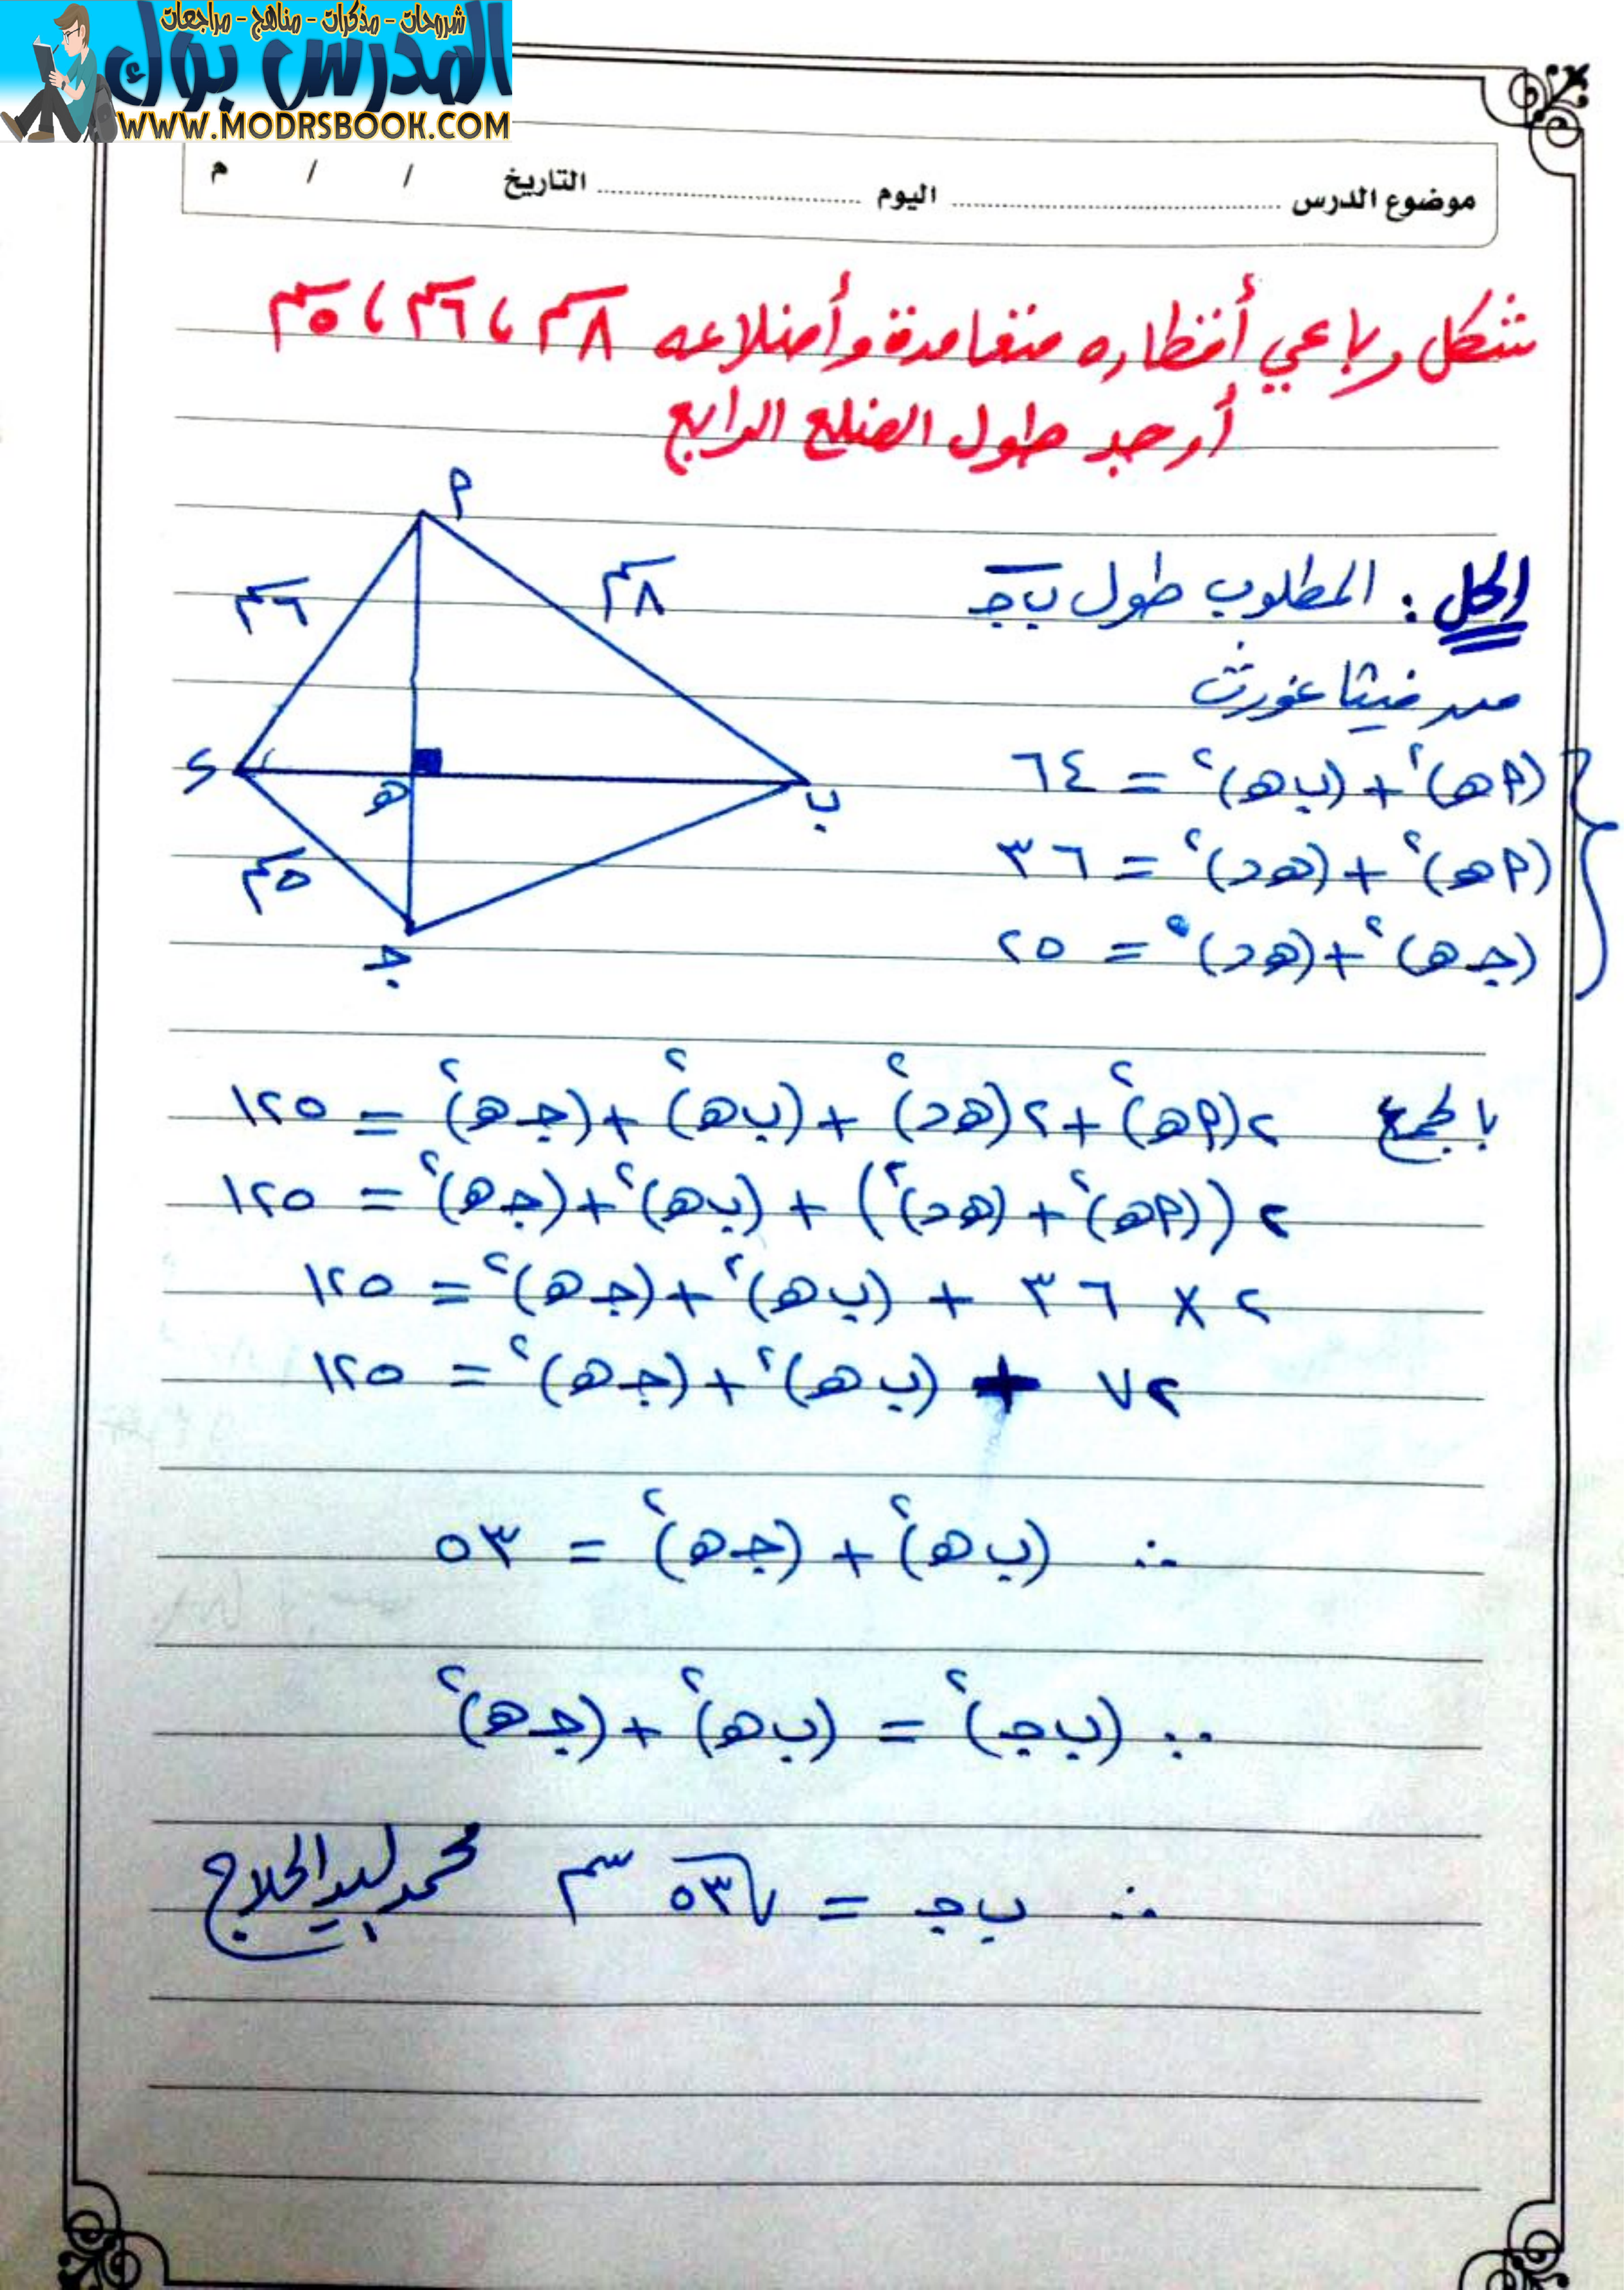 شروحات - مذكرات - مناهج - مراجعات
المدرس بوك
WWW.MODRSBOOK.COM
موضوع الدرس ........ اليوم ........ التاريخ / / م
شكل رباعي أقطاره متعامدة وأضلاعه ٨سم ، ٦سم ، ٥سم
أوجد طول الضلع الرابع
الحل : المطلوب طول ب جـ
من فيثاغورث
(أ هـ)² + (ب هـ)² = ٦٤
(أ هـ)² + (هـ د)² = ٣٦
(جـ هـ)² + (هـ د)² = ٢٥
أ
٦سم
٨سم
د
هـ
ب
٥سم
جـ
بالجمع ٢(أ هـ)² + ٢(هـ د)² + (ب هـ)² + (جـ هـ)² = ١٢٥
٢((أ هـ)² + (هـ د)²) + (ب هـ)² + (جـ هـ)² = ١٢٥
٢ × ٣٦ + (ب هـ)² + (جـ هـ)² = ١٢٥
٧٢ + (ب هـ)² + (جـ هـ)² = ١٢٥
∴ (ب هـ)² + (جـ هـ)² = ٥٣
∵ (ب جـ)² = (ب هـ)² + (جـ هـ)²
∴ ب جـ = √٥٣ سم محمد السيد الحلاج